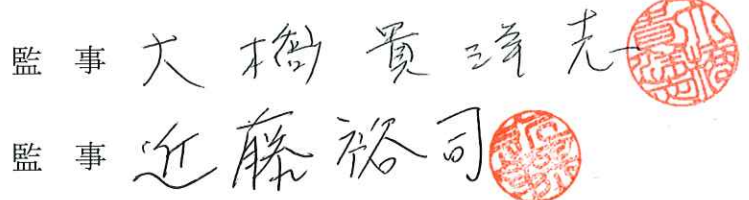 監事 大橋貫洋志
監事 近藤裕司